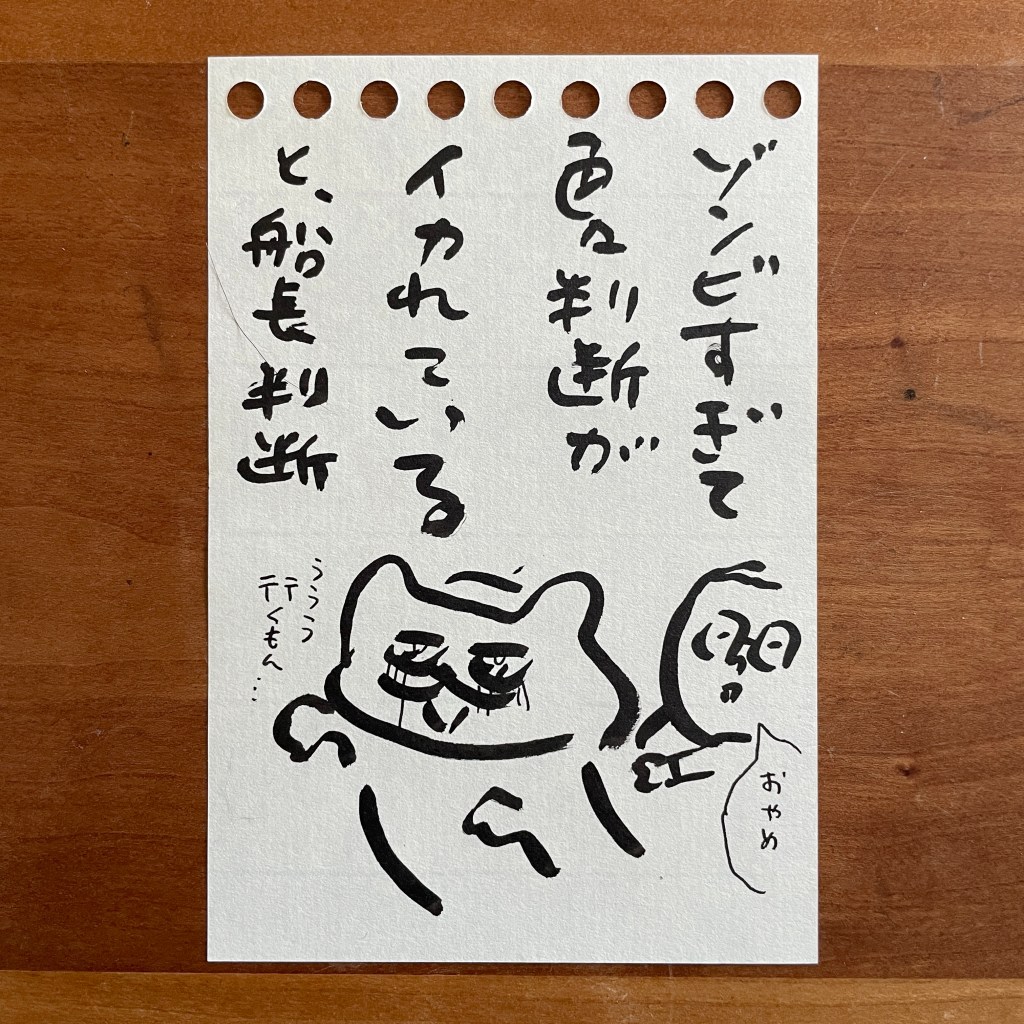 ゾンビすぎて
色々判断が
イカれている
と、船長判断
ううう
行くもん…
おやめ